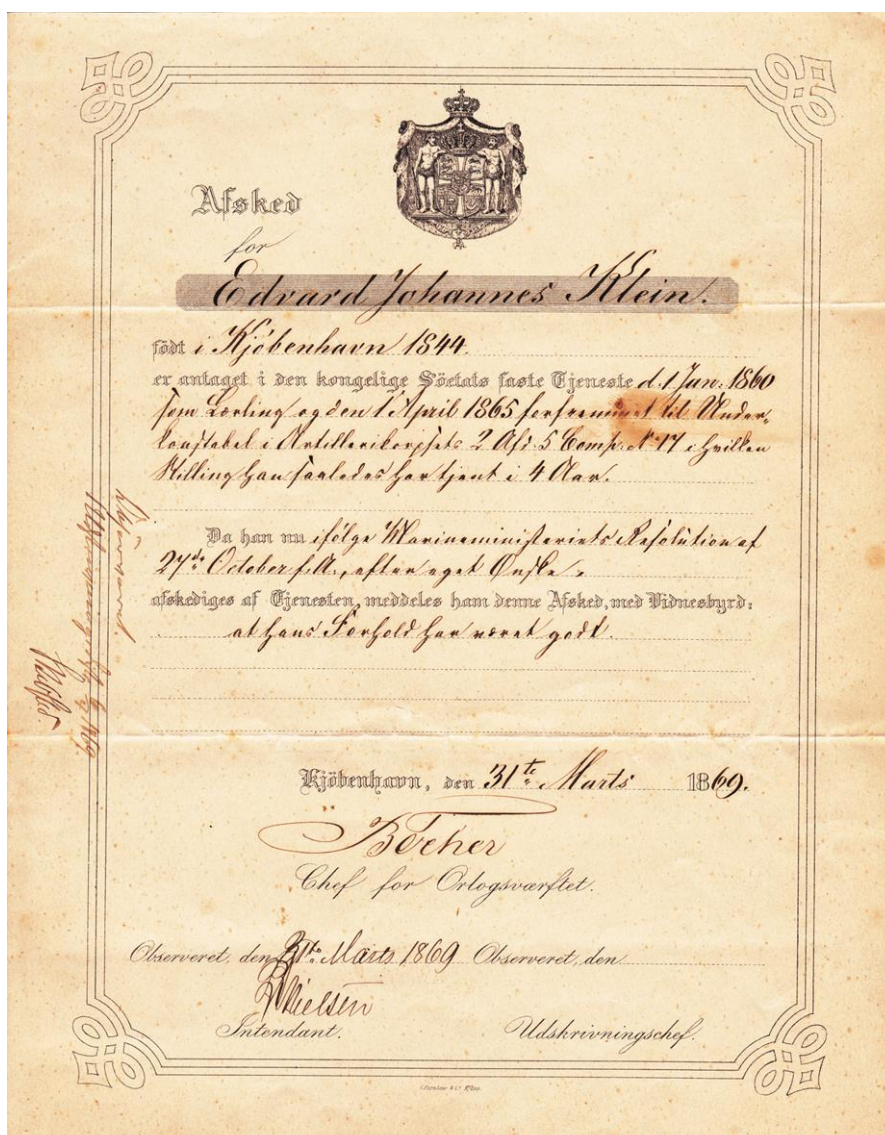 Afsked
for
Edvard Johannes Klein.
födt i Kjöbenhavn 1844.
er antaget i den kongelige Söetats faste Tjeneste d. 1 Jan: 1860
som Lærling og den 1 April 1865 forfremmet til Under-
konstabel i Artillerikorpsets 2 Afd. 5 Comp. No 17 i hvilken
Stilling han saaledes har tjent i 4 Aar.
Da han nu ifølge Marineministeriets Resolution af
27de October f. A., efter eget Ønske
afskediges af Tjenesten, meddeles ham denne Afsked, med Vidnesbyrd:
at hans Forhold har været godt.
Kjöbenhavn, den 31te Marts 1869.
Chef for Orlogsværftet.
Observeret, den 31te Marts 1869 Observeret, den
Nielsen
Intendant. Udskrivningschef.